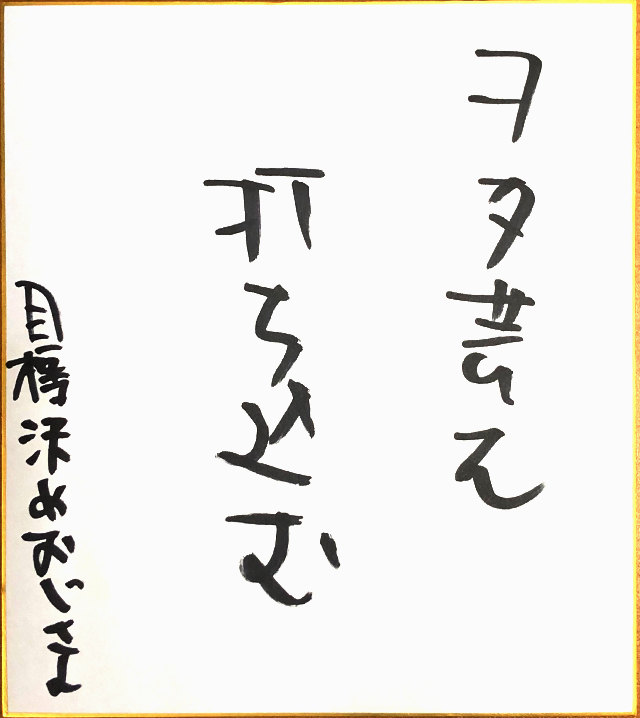 ヲタ芸え
打ち込む
目標決めおじさん